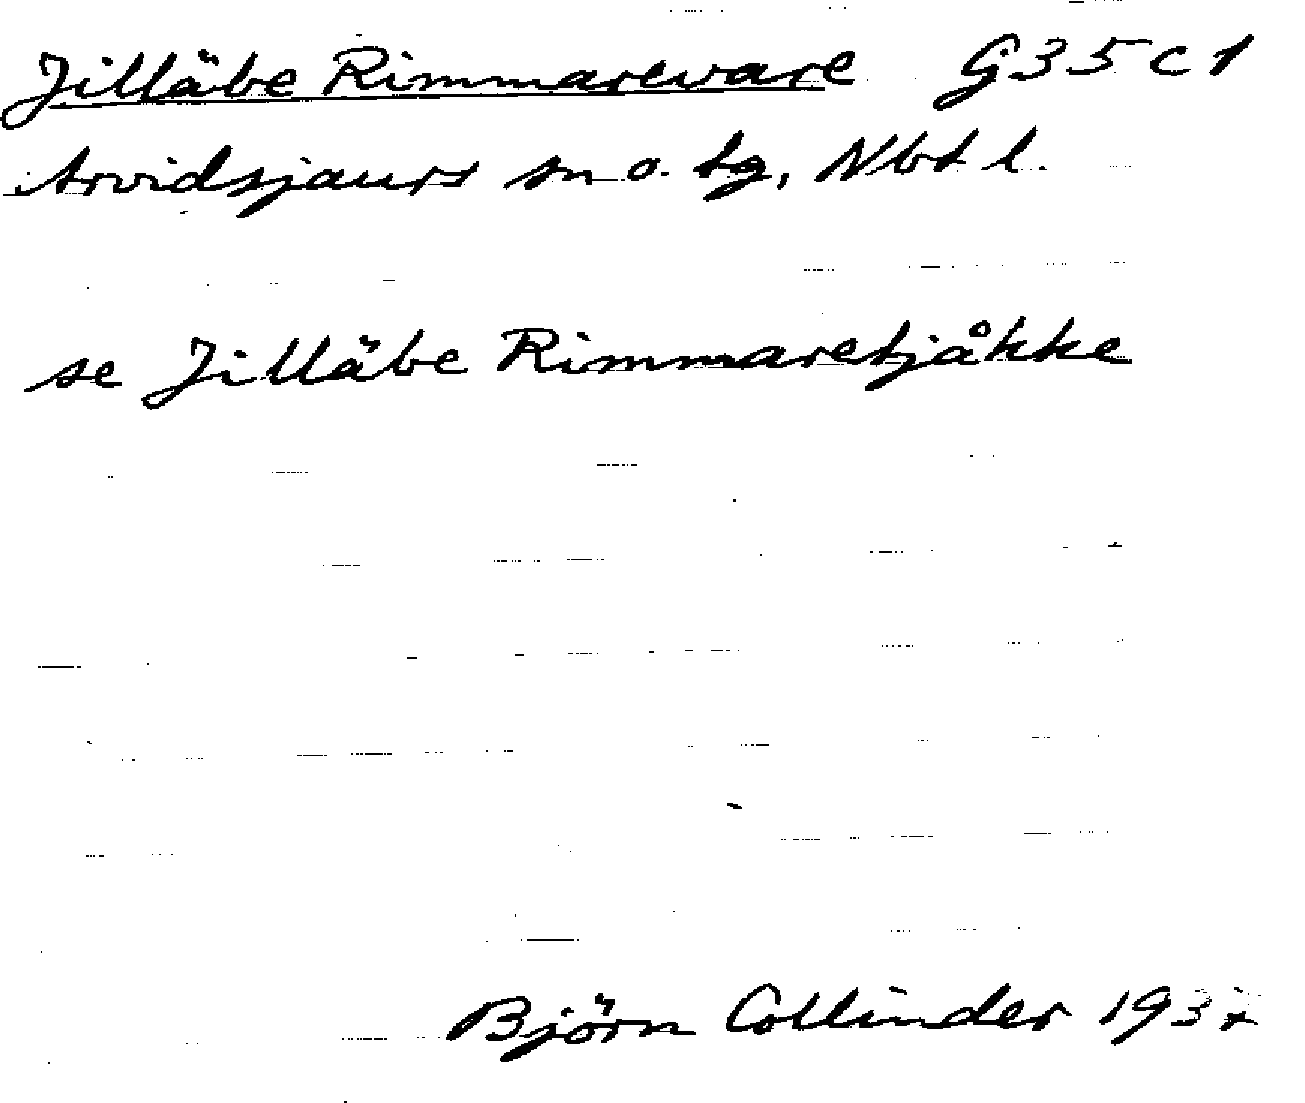 Jilläbe Rimmareware G35c1
Arvidsjaurs sn o. tg, Nbt l.
se Jilläbe Rimmaretjåkke
Björn Collinder 1937